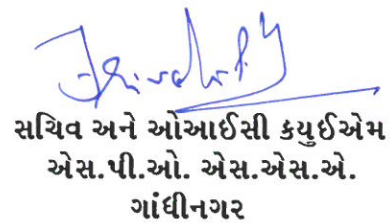 સચિવ અને ઓઆઈસી ક્યુઈએમ
એસ.પી.ઓ. એસ.એસ.એ.
ગાંધીનગર